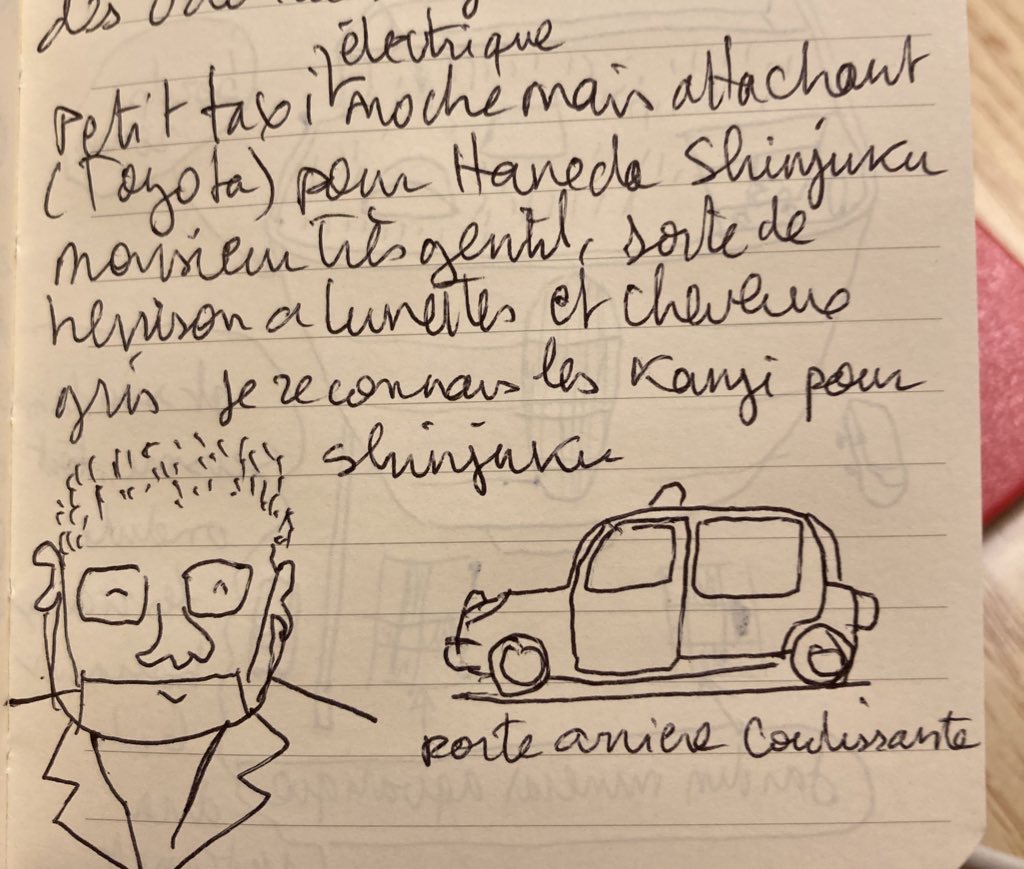 des
électrique
Petit taxi moche mais attachant
(Toyota) pour Haneda Shinjuku
monsieur très gentil, sorte de
herisson a lunettes et cheveux
gris je reconnais les Kanji pour
shinjuku
porte arriere coulissante